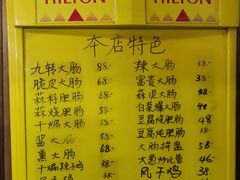 HILTON HILTON
本店特色
九转大肠 88.-
脆皮大肠 68.-
蒜籽肥肠 58.-
蒜烧肥肠 58.-
干煸大肠 58.-
酱大肠 58.-
熏大肠 68.-
干煸辣子鸡 58.-
辣大肠 38.-
富贵大肠 38.-
蒜泥大肠 48.-
白菜爆大肠 38.-
豆腐炖肥肠 38.-
豆腐炖肥肠 38.-
大肠拼盘 58.-
大葱炒 46
风干鸡 38.-